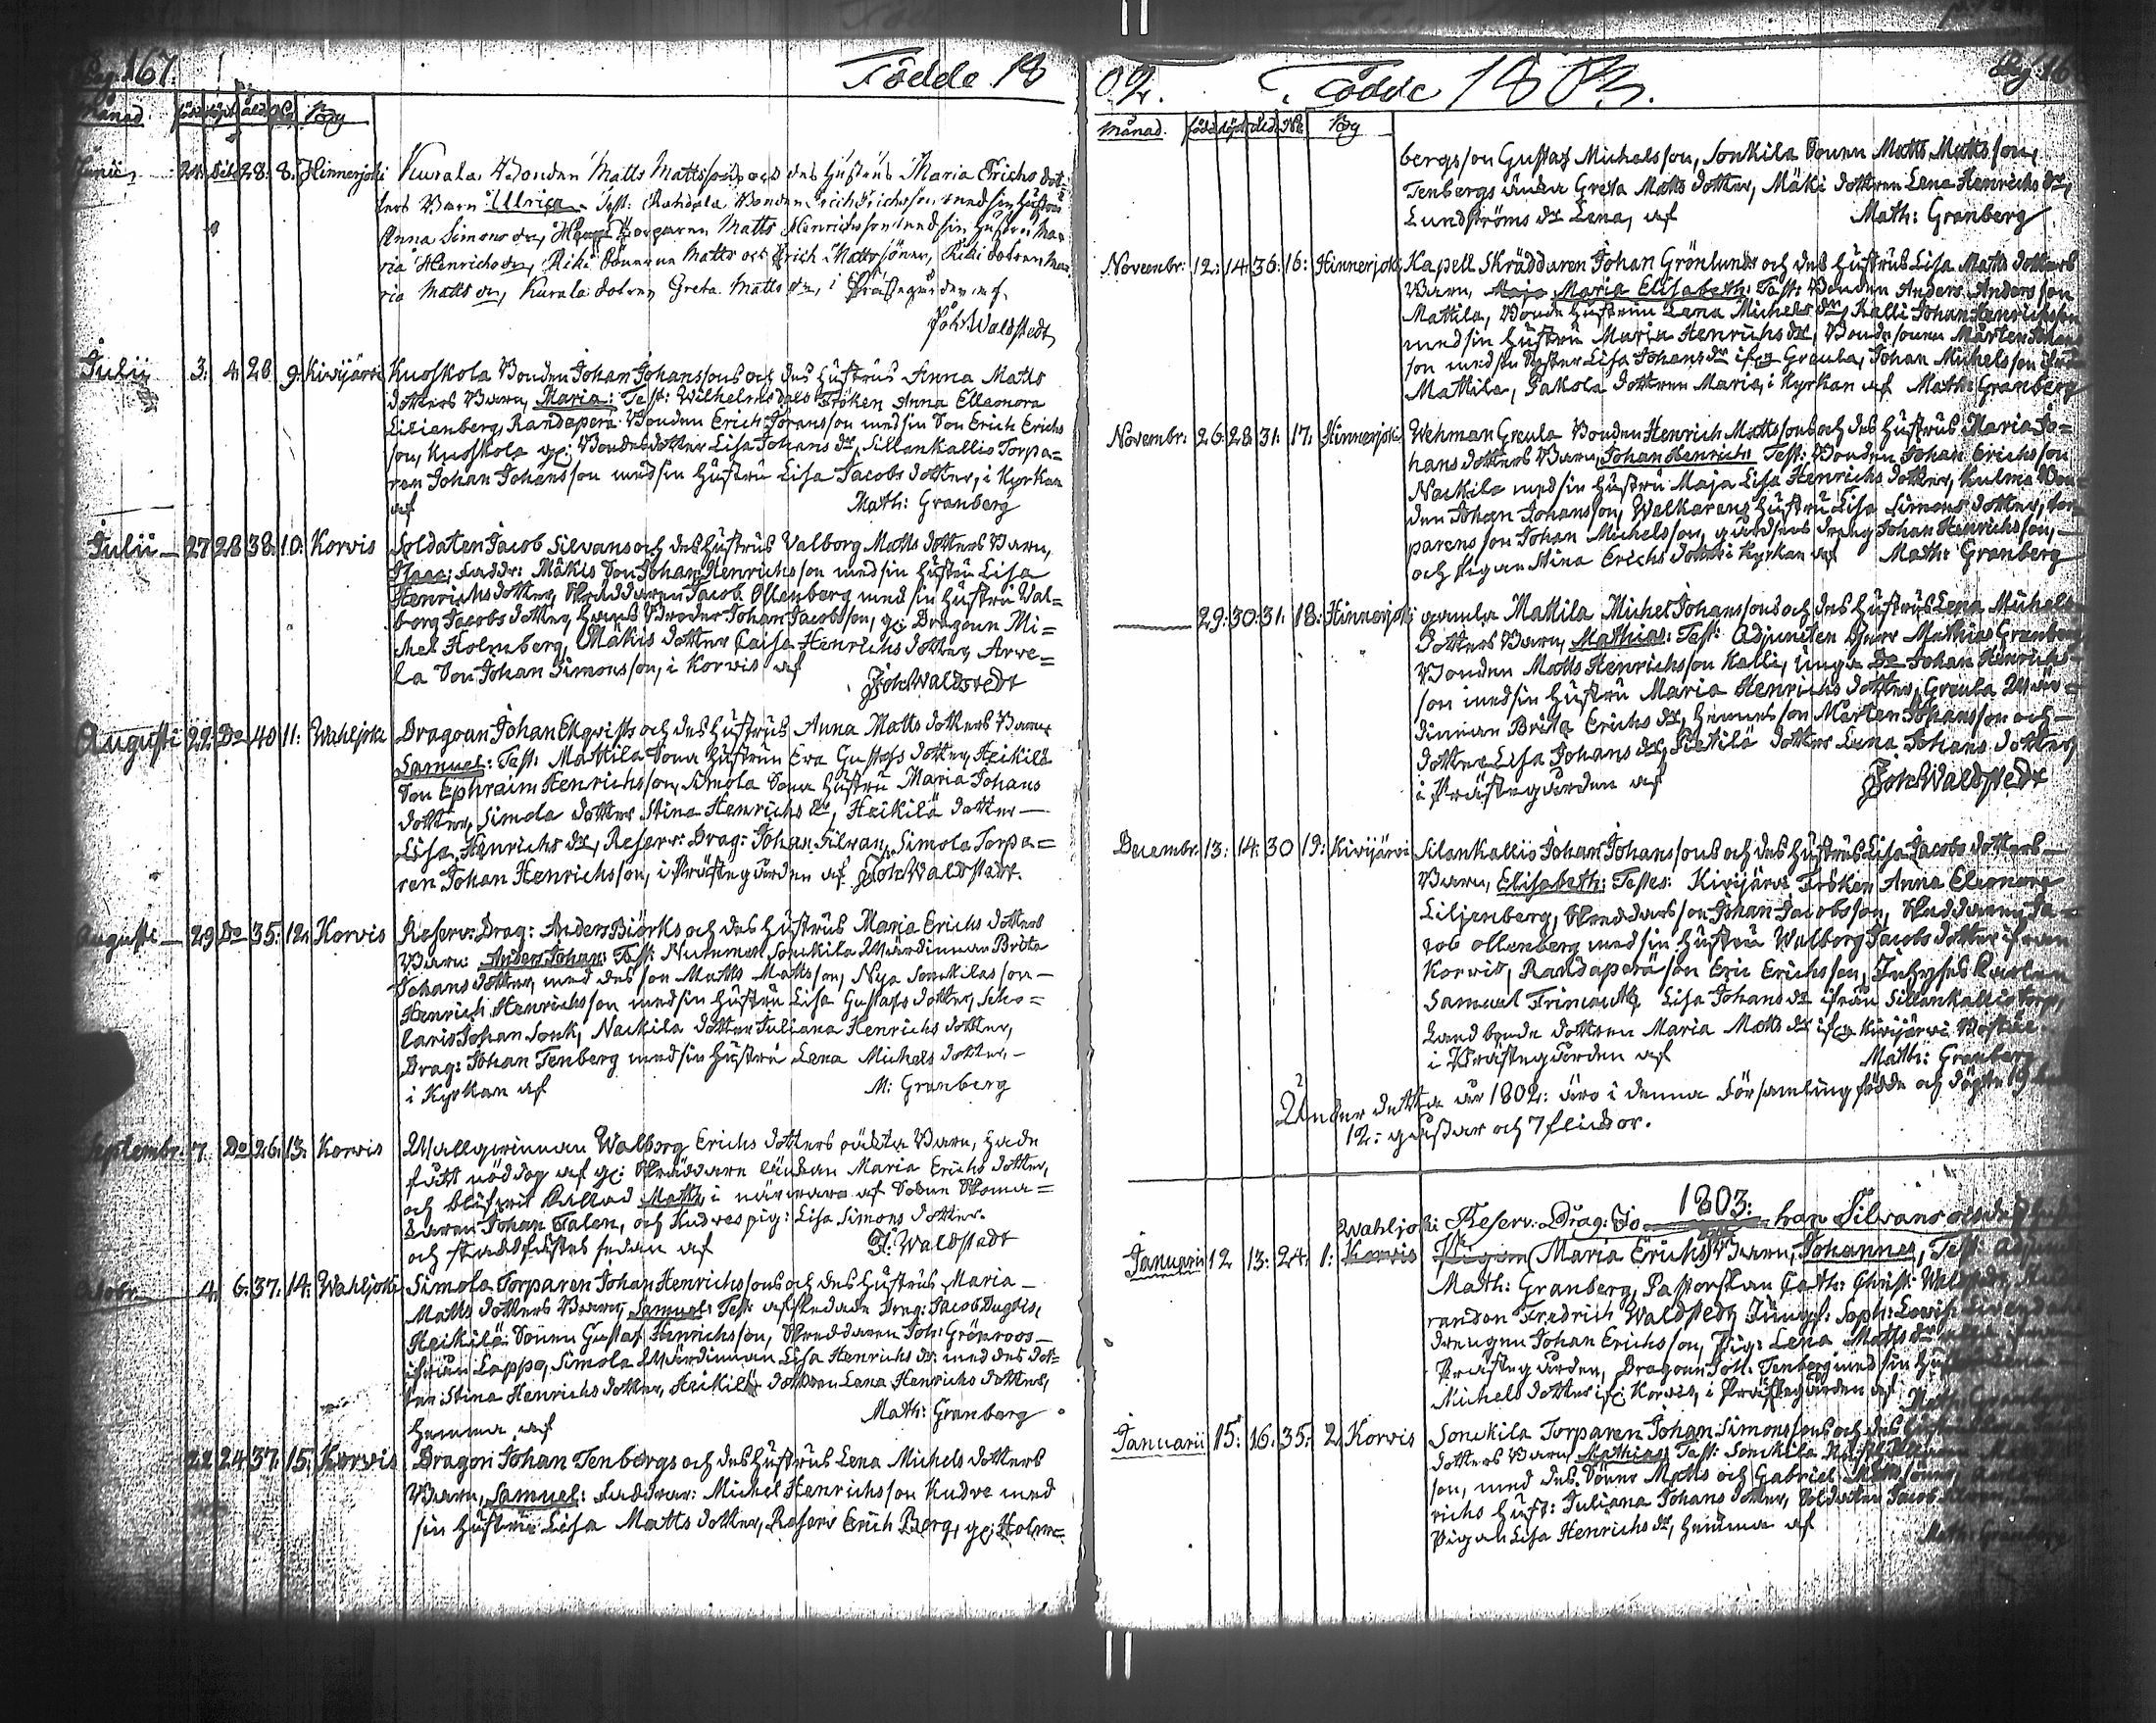 Pag. 167.
Födde 18
Månad. född döpt åld. No By
Junii 28. 8. Hinnerjoki Kurala Bonden Matts Mattssons och des hustrus Maria Erichs dot-
ters Barn Ulrica. Test: Bonden Erich Erichsson med sin hustru
Anna Simons dr, Torparen Matts Henrichsson med sin hustru Ma-
ria Henrichs dr, Riki Sönerne Matts och Erich Mattssöner, Riki dotren Ma-
ria Matts dr, Kurala dotren Greta Matts dr, i Prästegården af
Joh: Waldstedt
Julii 3. 4. 28 9. Kivijärvi Kuoskola Bonden Johan Johanssons och des hustrus Anna Matts
dotters Barn, Maria: Test: Wilhelmsdals Fröken Anna Elleonora
Lilienberg, Randaperä Bonden Erich Göransson med sin Son Erich Erichs
son, Kuoskola gl: Bondedotter Lisa Johans dr, Sillankallio Torpa=
ren Johan Johansson med sin hustru Lisa Jacobs dotter, i Kyrkan
af Math: Granberg
Julii 27 28 38. 10. Korvis Soldaten Jacob Silvans och des hustrus Valborg Matts dotters Barn,
Isaac: Faddr: Mäkis Son Johan Henrichsson med sin hustru Lisa
Henrichs dotter, Skräddaren Jacob Ollenberg med sin hustru Val=
borg Jacobs dotter, hans Broder Johan Jacobsson, gl: Dragoun Mi=
chel Holmberg, Mäkis dotter Caisa Henrichs dotter, Arve=
la Son Johan Simonsson, i Korvis af
Joh: Waldstedt
Augusti 22. Do 40 11. Wahljoki Dragoun Johan Ellqvists och des hustrus Anna Matts dotters Barn
Samuel: Test: Mattila Sona hustrun Eva Gustafs dotter, Heikilä
Son Ephraim Henrichsson, Simola Sona hustru Maria Johans
dotter, Simola dotter Stina Henrichs dr, Heikilä dotter
Lisa Henrichs dr, Reserv: Drag: Johan Silvan, Simola Torpa=
ren Johan Henrichsson, i Prästegården af Joh: Waldstedt.
Augusti 29 Do 35. 12. Korvis Reserv: Drag: Anders Biörks och des hustrus Maria Erichs dotters
Barn: Anders Johan: Test: Nummen Sonckila Wärdinnan Brita
Johans dotter, med des son Matts Mattsson, Nya Sonckilas son
Henrich Henrichsson med sin hustru Lisa Gustafs dotter, Scho=
laris Johan Sonk, Nackila dotter Juliana Henrichs dotter,
Drag: Johan Tenberg med sin hustru Lena Michels dotter,
i Kyrkan af M: Granberg
Septembr. 7. Do 26. 13. Korvis Wallqvinnan Walborg Erichs dotters oäkta Barn, hade
fått nöddop af gl: Skräddare änkan Maria Erichs dotter,
och blifvit kallad Matts i närvaro af Sockne Skoma=
karen Johan Falen, och Kudres pig: Lisa Simons dotter.
och stadsfästes sedan af J: Waldstedt
Octobr. 4. 6. 37. 14. Wahljoki Simola Torparen Johan Henrichssons och des hustrus Maria
Matts dotters Barn, Samuel: Test: afskedade Drag: Jacob Duglis,
Heikilä Sonen Gustaf Henrichsson, Skreddaren Joh: Grönroos
ifrån Lappo, Simola Wärdinnan Lisa Henrichs dr: med des dot=
ter Stina Henrichs dotter, Heikilä dotren Lena Henrichs dotter,
hemma af Math: Granberg
22 24 37. 15. Korvis Dragon Johan Tenbergs och des hustrus Lena Michels dotters
Barn, Samuel: Faddrar: Michel Henrichsson Kudre med
sin hustru Lisa Matts dotter, Reserv Erich Berg, gl: Holm=
02. Födde 1803.
Månad. född döpt åld. No By
bergs son Gustaf Michelsson, Sonkila Sonen Matts Mattsson,
Tenbergs änka Greta Matts dotter, Mäki dottren Lena Henrichs dr,
Lundströms dr Lena, af Math: Granberg
Novembr: 12. 14. 36. 16. Hinnerjoki Kapell Skräddaren Johan Grönlunds och des hustrus Lisa Matts dotters
Barn, Maja Maria Elisabeth: Test: Bonden Anders Andersson
Mattila, Bonde hustrun Lena Michels dr, Kalli Johan Henrichsson
med sin hustru Maria Henrichs dr, Bondesonen Mårten Johans
son med sin Syster Lisa Johans dr ifrån Greula, Johan Michelsson ifrån
Mattila, Pakola dottren Maria, i Kyrkan af Math: Granberg
Novembr: 26. 28. 31. 17. Hinnerjoki Wehman Greula Bonden Henrich Mattssons och des hustrus Maria Jo=
hans dotters Barn, Johan Henrich Test: Bonden Johan Erichsson
Nackila med sin hustru Maja Lisa Henrichs dotter, Kulma Bon
den Johan Johansson, Walkarens hustru Lisa Simons dotter, Tor
parens son Johan Michelsson, gårdsens dreng Johan Henrichsson,
och pigan Stina Erichs dotter i Kyrkan af Math: Granberg
29. 30. 31. 18. Hinnerjoki gamla Mattila Michel Johanssons och des hustrus Lena Michels
dotters Barn, Mathias: Test: Adjuncten Herr Mathias Granberg
Bonden Matts Henrichsson Kalli, unga Do Johan Henrichs
son med sin hustru Maria Henrichs dotter, Greula Wär=
dinnan Brita Erichs dr, hennes son Mårten Johansson och
dotter Lisa Johans dr, Pietilä dotter Lena Johans dotter,
i Prästegården af Joh: Waldstedt
Decembr. 13. 14. 30 19. Kivijärvi Silankallio Johan Johanssons och des hustrus Lisa Jacobs dotters
Barn, Elisabeth: Testes: Kivijärvi Fröken Anna Eleonora
Liljenberg, Skreddars son Johan Jacobsson, Skreddaren Ja=
cob Ollenberg med sin hustru Walborg Jacobs dotter ifrån
Korvis, Randaperä son Eric Erichsson, Inhyses Karlen
Samuel, Lisa Johans dr ifrån Sillankallio torp,
Landbonde dottren Maria Matts dr ifrån Kivijärvi
i Prästegården af Math: Granberg
Under detta år 1802: äro i denna Församling födde och döpte 19
12: gossar och 7 flickor.
1803:
Wahljoki Reserv: Drag: Johan Silvans och des
Januarii 12 13. 24. 1. Korvis Pigan Maria Erichs Barn, Johannes, Test: Adjunct
Math: Granberg, Pastorskan Cath: Christ: Waldstedt,
randen Fredrich Waldstedt, Jungf: Soph: Lovis:
drengen Johan Erichsson, Pig: Lena Matts dr
Prästegården, Dragoun Joh: Tenberg med sin hust
Michels dotter ifrån Korvis, i Prästegården af
Math: Granberg
Januarii 15. 16. 35. 2. Korvis Sonckila Torparen Johan Simonssons och des
dotters Barn Mathias Test: Sonckila
son, med des Söner Matts och Gabriel Matts söner,
richs hust: Juliana Johans dotter, Soldaten Jacob
Pigan Lisa Henrichs dr, hemma af
Math: Granberg